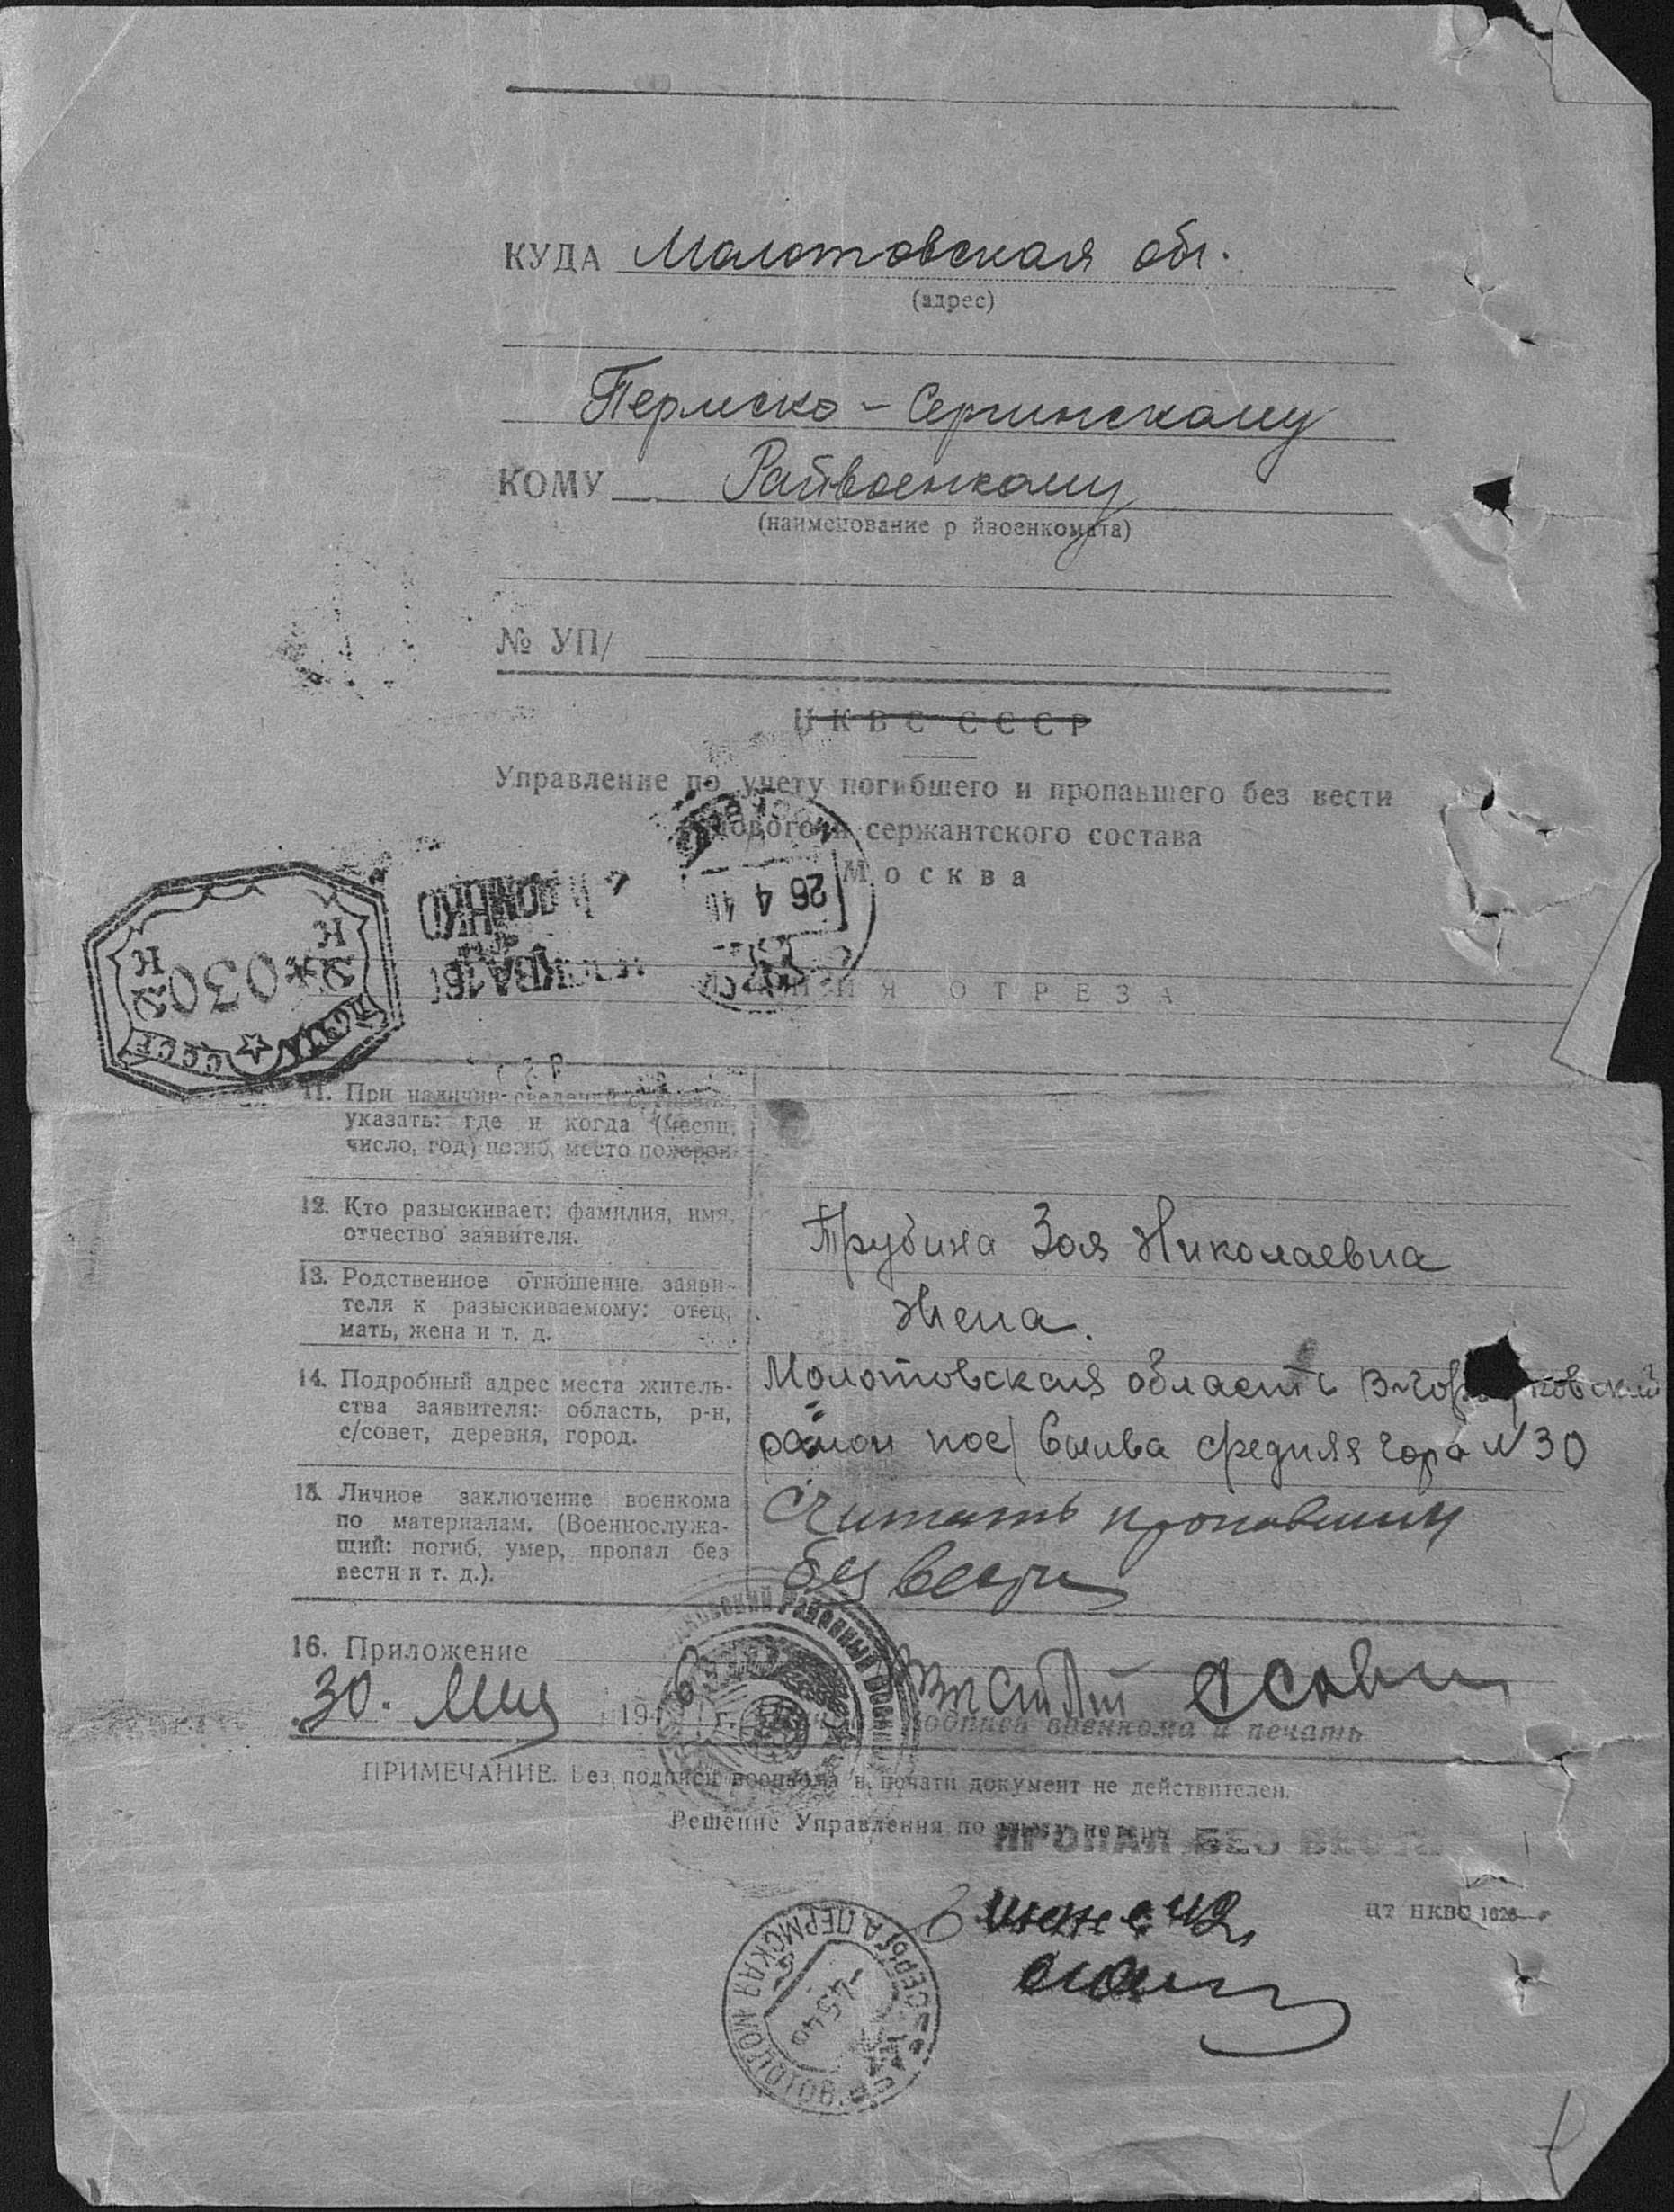 КУДА Молотовская обл.
(адрес)
Пермско-Сергинскому
КОМУ Райвоенкому
(наименование р йвоенкомата)
№ УП/
ЦКВС СССР
Управление по учету погибшего и пропавшего без вести
сержантского состава
Москва
26 4 46
030
СССР
ЛИНИЯ ОТРЕЗА
11. При наличии сведений
указать: где и когда (месяц,
число, год) погиб, место похорон
12. Кто разыскивает: фамилия, имя,
отчество заявителя.
Трубина Зоя Николаевна
13. Родственное отношение заяви-
теля к разыскиваемому: отец,
мать, жена и т. д.
Жена.
14. Подробный адрес места житель-
ства заявителя: область, р-н,
с/совет, деревня, город.
Молотовская область В-Гор ковский
район пос Сылва средняя гора N 30
15. Личное заключение военкома
по материалам. (Военнослужа-
щий: погиб, умер, пропал без
вести и т. д.).
Считать пропавшим
без вести
16. Приложение
30. Мая 1946 г.
подпись военкома и печать
ПРИМЕЧАНИЕ. Без подписи военкома и печати документ не действителен.
Решение Управления по учету потерь
ПРОПАЛ БЕЗ ВЕСТИ
в июне 42
ЦТ НКВС 1626
СЕРГА ПЕРМСКАЯ МОЛОТОВ.